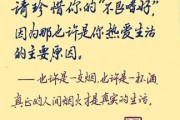 请珍惜你的“不良嗜好”
因为那也许是你热爱生活
的主要原因。
——也许是一支烟,也许是一杯酒
真正的人间烟火才是真实的生活。